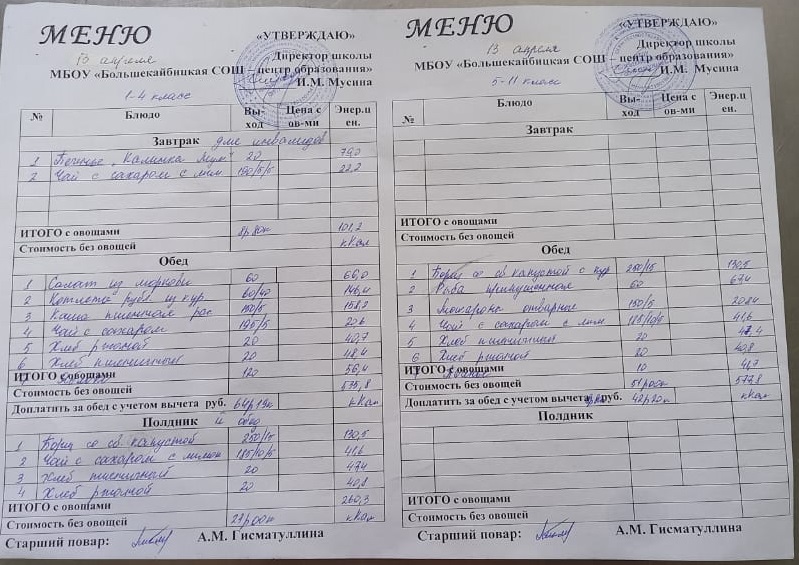 МЕНЮ
«УТВЕРЖДАЮ»
13 апреля
Директор школы
МБОУ «Большекайбицкая СОШ – центр образования»
И.М. Мусина
1-4 класс
№ Блюдо Вы-ход Цена с ов-ми Энер.ц ен.
Завтрак для инвалидов
1 Печенье „Калинка 20 79,0
2 Чай с сахаром с лим 190/5/5 22,2
ИТОГО с овощами 8р 80к 101,2
Стоимость без овощей кКал
Обед
1 Салат из моркови 60 66,0
2 Котлета руб. из кур 60/40 146,4
3 Каша пшеничная рас 150/5 158,2
4 Чай с сахаром 195/5 20,6
5 Хлеб ржаной 20 40,7
6 Хлеб пшеничный 20 48,4
ИТОГО с овощами 120 56,4
Стоимость без овощей 575,8
Доплатить за обед с учетом вычета руб. 64р 13к кКал
Полдник и обед
1 Борщ со св. капустой 250/15 130,5
2 Чай с сахаром с лимон 185/10/5 41,6
3 Хлеб пшеничный 20 47,4
4 Хлеб ржаной 20 40,8
ИТОГО с овощами 260,3
Стоимость без овощей 21р 00к кКал
Старший повар: А.М. Гисматуллина
МЕНЮ
«УТВЕРЖДАЮ»
13 апреля
Директор школы
МБОУ «Большекайбицкая СОШ – центр образования»
И.М. Мусина
5-11 класс
№ Блюдо Вы-ход Цена с ов-ми Энер.ц ен.
Завтрак
ИТОГО с овощами
Стоимость без овощей
Обед
1 Борщ со св капустой с кур 250/15 130,5
2 Рыба припущенная 60 67,4
3 Макароны отварные 150/5 208,4
4 Чай с сахаром с лим 185/10/5 41,6
5 Хлеб пшеничный 20 47,4
6 Хлеб ржаной 20 40,8
ИТОГО с овощами 10 41,7
Стоимость без овощей 51р 00к 577,8
Доплатить за обед с учетом вычета руб. 42р 20к кКал
Полдник
ИТОГО с овощами
Стоимость без овощей
Старший повар: А.М. Гисматуллина